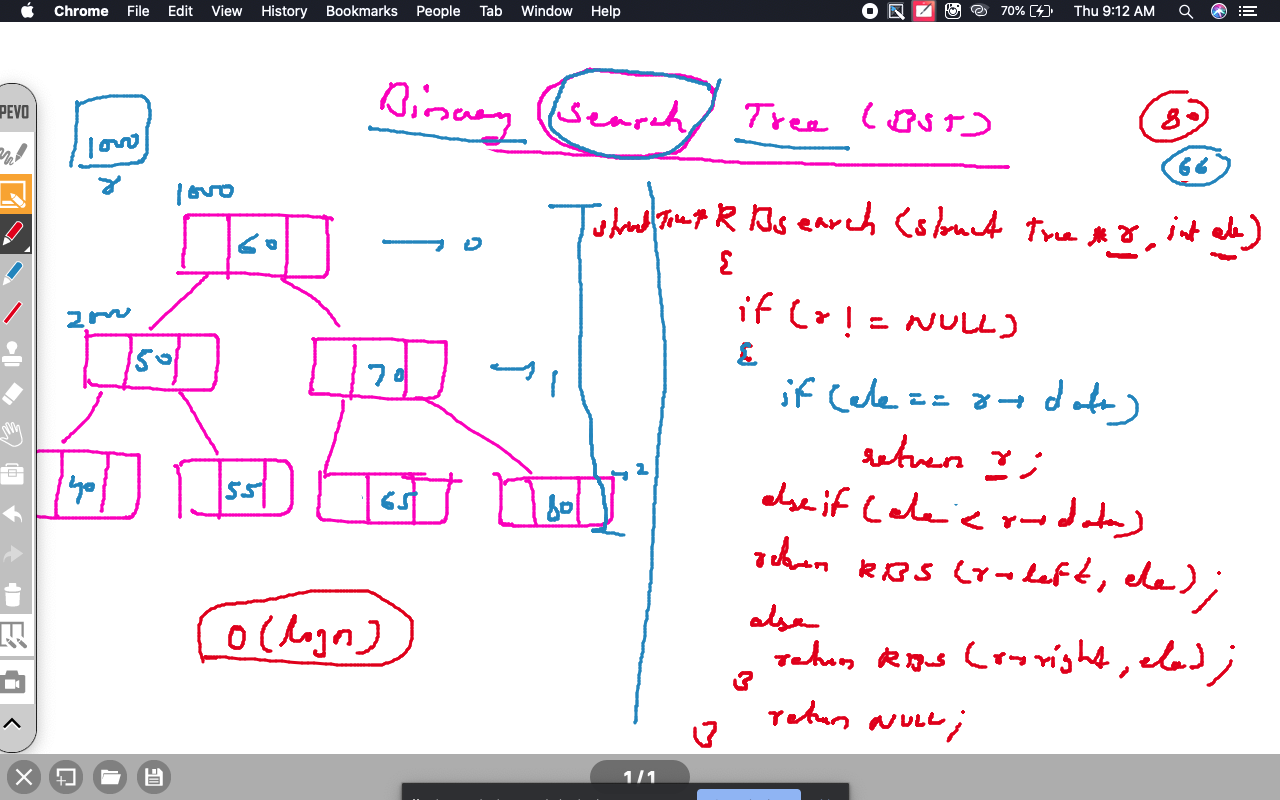 Chrome File Edit View History Bookmarks People Tab Window Help 70% Thu 9:12 AM
PEVO
Binary Search Tree (BST)
80
66
1000
r
1000
60 → 0
2000
50 70 → 1
40 55 65 80 → 2
O(logn)
struct Tree * RBSearch (struct Tree * r, int ele)
{
if (r != NULL)
{
if (ele == r → data)
return r;
else if (ele < r → data)
return RBS (r → left, ele);
else
return RBS (r → right, ele);
}
return NULL;
}
1/1